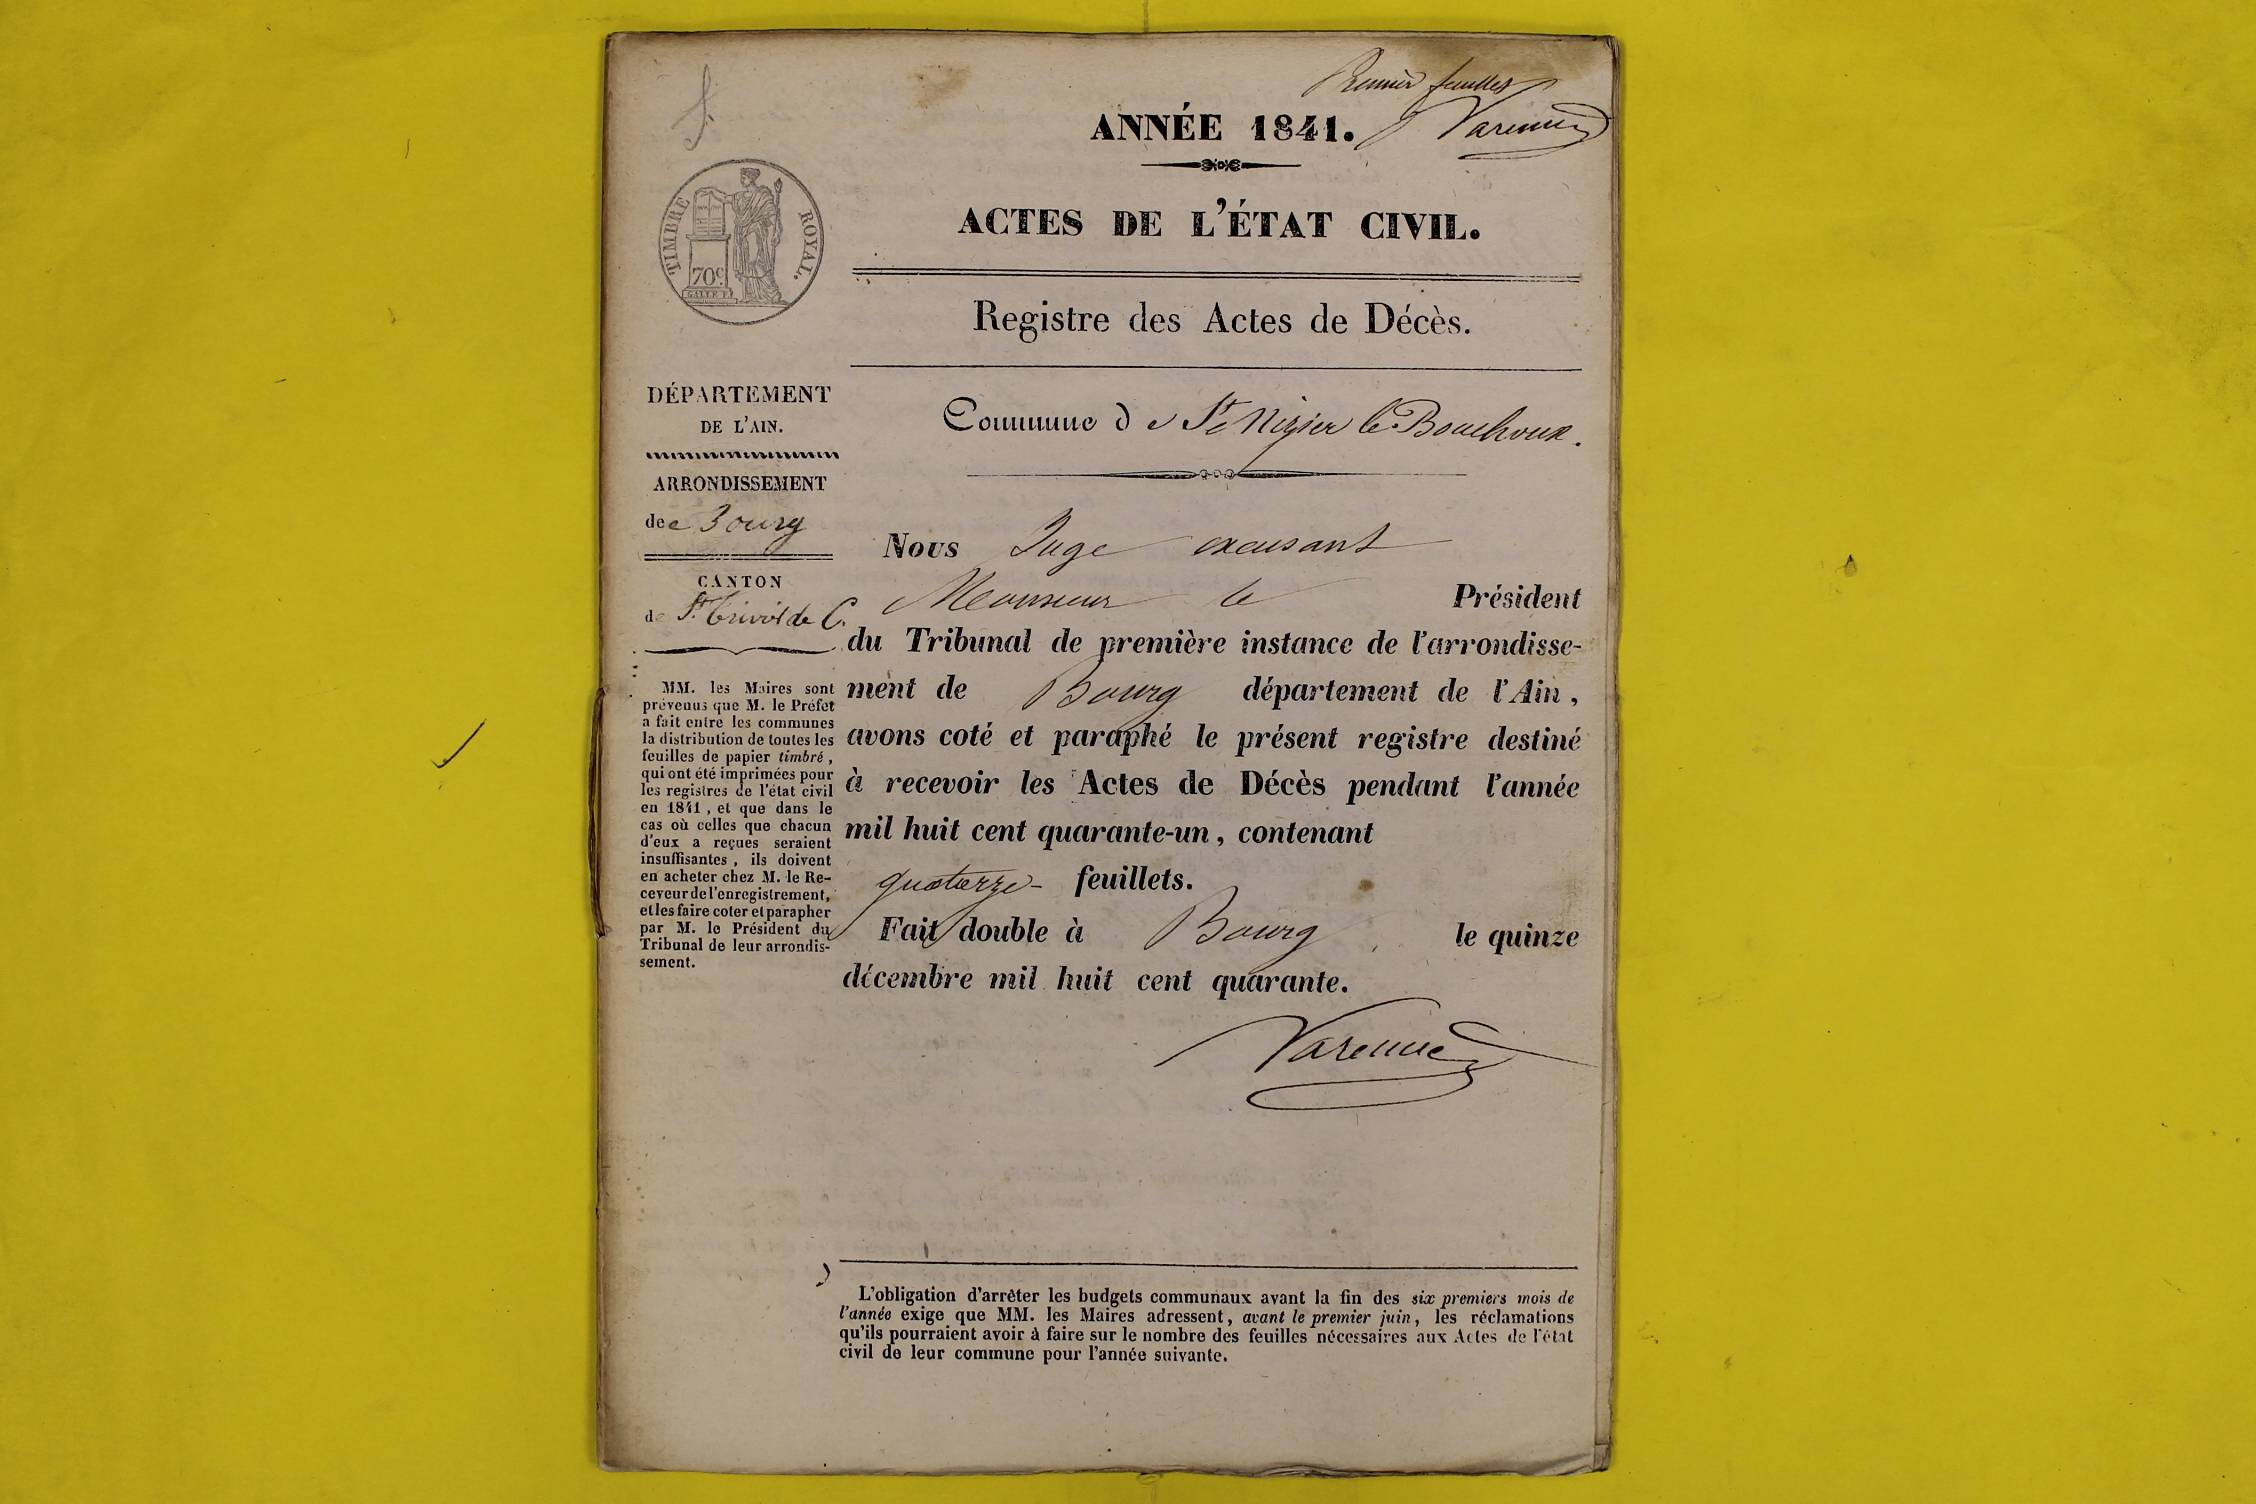 Premier feuillet
Varenne
ANNÉE 1841.
ACTES DE L'ÉTAT CIVIL.
TIMBRE ROYAL.
70c.
GALLE F.
Registre des Actes de Décès.
DÉPARTEMENT
DE L'AIN.
ARRONDISSEMENT
de Bourg
CANTON
de St. Trivier de C.
MM. les Maires sont
prévenus que M. le Préfet
a fait entre les communes
la distribution de toutes les
feuilles de papier timbré,
qui ont été imprimées pour
les registres de l'état civil
en 1841, et que dans le
cas où celles que chacun
d'eux a reçues seraient
insuffisantes, ils doivent
en acheter chez M. le Re-
ceveur de l'enregistrement,
et les faire coter et parapher
par M. le Président du
Tribunal de leur arrondis-
sement.
Commune de St Nizier le Bouchoux.
Nous Juge excusant
Monsieur le Président
du Tribunal de première instance de l'arrondisse-
ment de Bourg département de l'Ain,
avons coté et paraphé le présent registre destiné
à recevoir les Actes de Décès pendant l'année
mil huit cent quarante-un, contenant
quatorze feuillets.
Fait double à Bourg le quinze
décembre mil huit cent quarante.
Varenne
L'obligation d'arrêter les budgets communaux avant la fin des six premiers mois de
l'année exige que MM. les Maires adressent, avant le premier juin, les réclamations
qu'ils pourraient avoir à faire sur le nombre des feuilles nécessaires aux Actes de l'état
civil de leur commune pour l'année suivante.